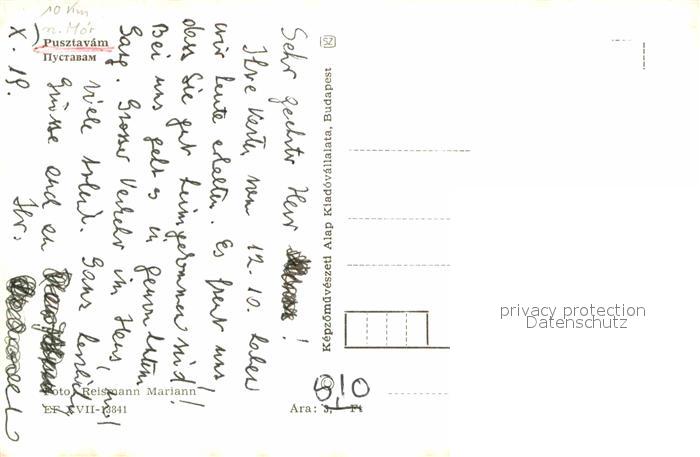 10 Km
n. Mór
Pusztavám
Пуставам
X. 19.
Sehr geehrter Herr
!
Ihre Karte vom 12.10. haben
wir heute erhalten. Es freut uns,
dass Sie gut heimgekommen sind!
Bei uns geht es in gewohntem
Gang. Grosser Verkehr im Haus,
viele Arbeit. Ganz herzliche
Grüsse und an
Ihr:
Képzőművészeti Alap Kiadóvállalata, Budapest
Foto: Reismann Mariann
EF XVII-13841
Ara: 3, Ft
privacy protection
Datenschutz